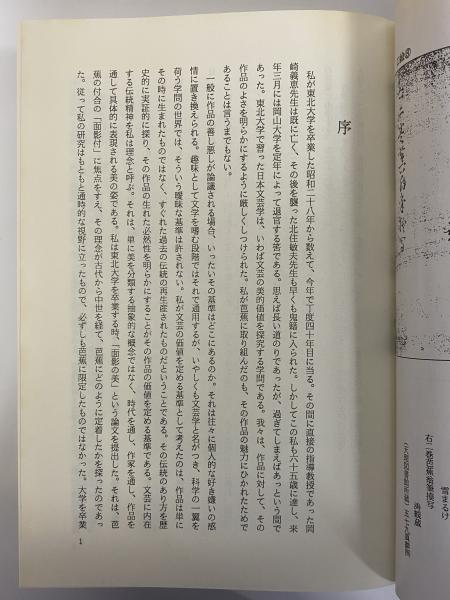 雪まるけ
序
私が東北大学を卒業した昭和二十八年から数えて、今年で丁度四十年目に当る。その間に直接の指導教授であった岡
崎義恵先生は既に亡く、その後を襲った北住敏夫先生も早くも鬼籍に入られた。しかしてこの私も六十五歳に達し、来
年三月には岡山大学を定年によって退官する筈である。思えば長い道のりであったが、過ぎてしまえばあっという間で
あった。東北大学で習った日本文芸学は、いわば文芸の美的価値を探究する学問である。我々は、作品に対して、その
作品のよさを明らかにするように厳しくしつけられた。私が芭蕉に取り組んだのも、その作品の魅力にひかれたためで
あることは言うまでもない。
一般に作品の善し悪しが論議される場合、いったいその基準はどこにあるのか。それは往々に個人的な好き嫌いの感
情に置き換えられる。趣味として文学を嗜む段階ではそれで通用するが、いやしくも文芸学と名がつき、科学の一翼を
荷う学問の世界では、そういう曖昧な基準は許されない。私が文芸の価値を定める基準として考えたのは、作品は単に
その時に生まれたものではなく、すぐれた過去の伝統の再生産されたものだということである。その伝統のあり方を歴
史的に実証的に探り、その作品の生れた必然性を明らかにすることがその作品の価値を定める基準である。文芸に内在
する伝統精神を私は理念と呼ぶ。それは、単に美を分類する抽象的な概念ではなく、時代を通し、作家を通し、作品を
通して具体的に表現される美の姿である。私は東北大学を卒業する時、「面影の美」という論文を提出した。それは、芭
蕉の付合の「面影付」に焦点をすえ、その理念が古代から中世を経て、芭蕉にどのように定着したかを探ったのであっ
た。従って私の研究はもともと通時的な視野に立ったもので、必ずしも芭蕉に限定したものではなかった。大学を卒業
1